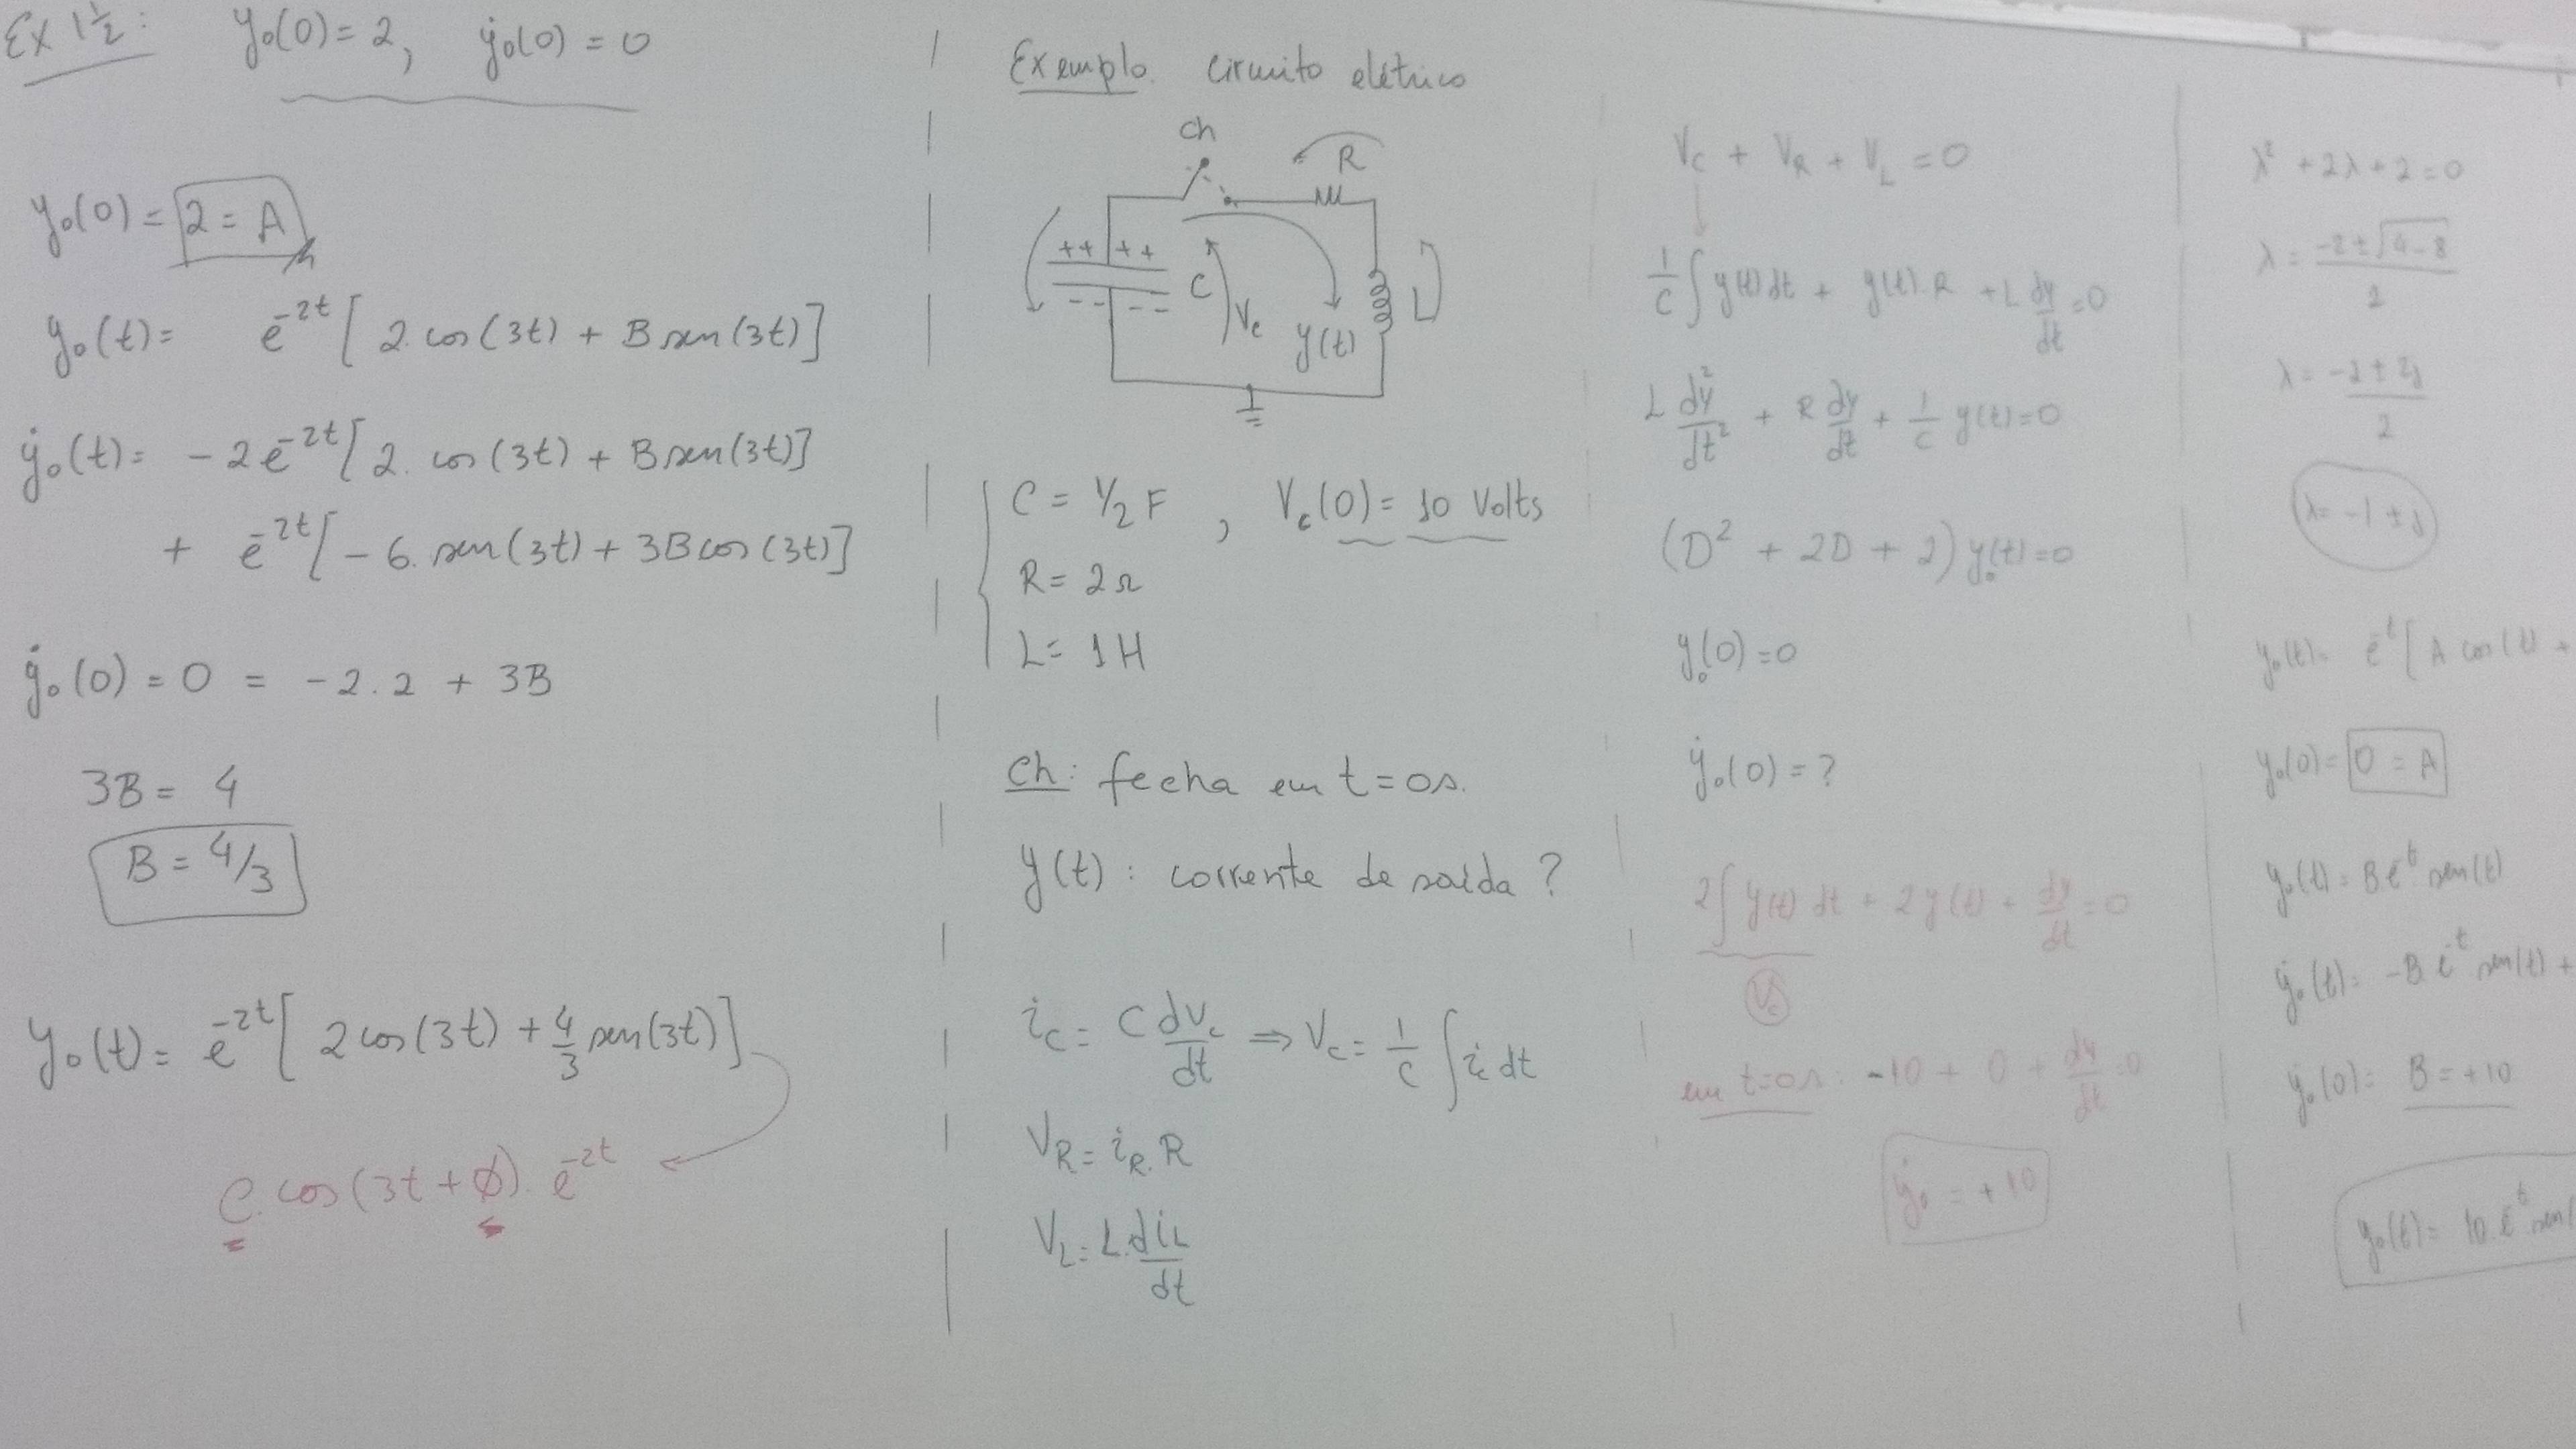 Ex 1½: y₀(0) = 2, ẏ₀(0) = 0
y₀(0) = 2 = A
y₀(t) = e^-2t [ 2 cos(3t) + B sen(3t) ]
ẏ₀(t) = -2e^-2t [ 2. cos(3t) + B sen(3t) ]
+ e^-2t [ -6. sen(3t) + 3B cos(3t) ]
ẏ₀(0) = 0 = -2.2 + 3B
3B = 4
B = 4/3
y₀(t) = e^-2t [ 2 cos(3t) + 4/3 sen(3t) ]
C. cos(3t + ϕ). e^-2t
Exemplo. circuito elétrico
Ch
R
++ ++
-- --
C
Vc
y(t)
L
C = 1/2 F, Vc(0) = 10 Volts
R = 2 Ω
L = 1 H
Ch: fecha em t = 0s.
y(t): corrente de saída?
ic = C dVc/dt ⇒ Vc = 1/C ∫ ic dt
VR = iR. R
VL = L. diL/dt
Vc + VR + VL = 0
1/C ∫ y(t) dt + y(t). R + L dy/dt = 0
L dy²/dt² + R dy/dt + 1/C y(t) = 0
(D² + 2D + 2) y₀(t) = 0
y₀(0) = 0
ẏ₀(0) = ?
2 ∫ y(t) dt + 2y(t) + dy/dt = 0
Vc
em t=0s: -10 + 0 + dy/dt = 0
ẏ₀ = +10
λ² + 2λ + 2 = 0
λ = -2 ± √4-8 / 2
λ = -2 ± 2j / 2
λ = -1 ± j
y₀(t) = e^-t [ A cos(t) +
y₀(0) = 0 = A
y₀(t) = B e^-t sen(t)
ẏ₀(t) = -B e^-t sen(t) +
ẏ₀(0) = B = +10
y₀(t) = 10. e^-t sen(